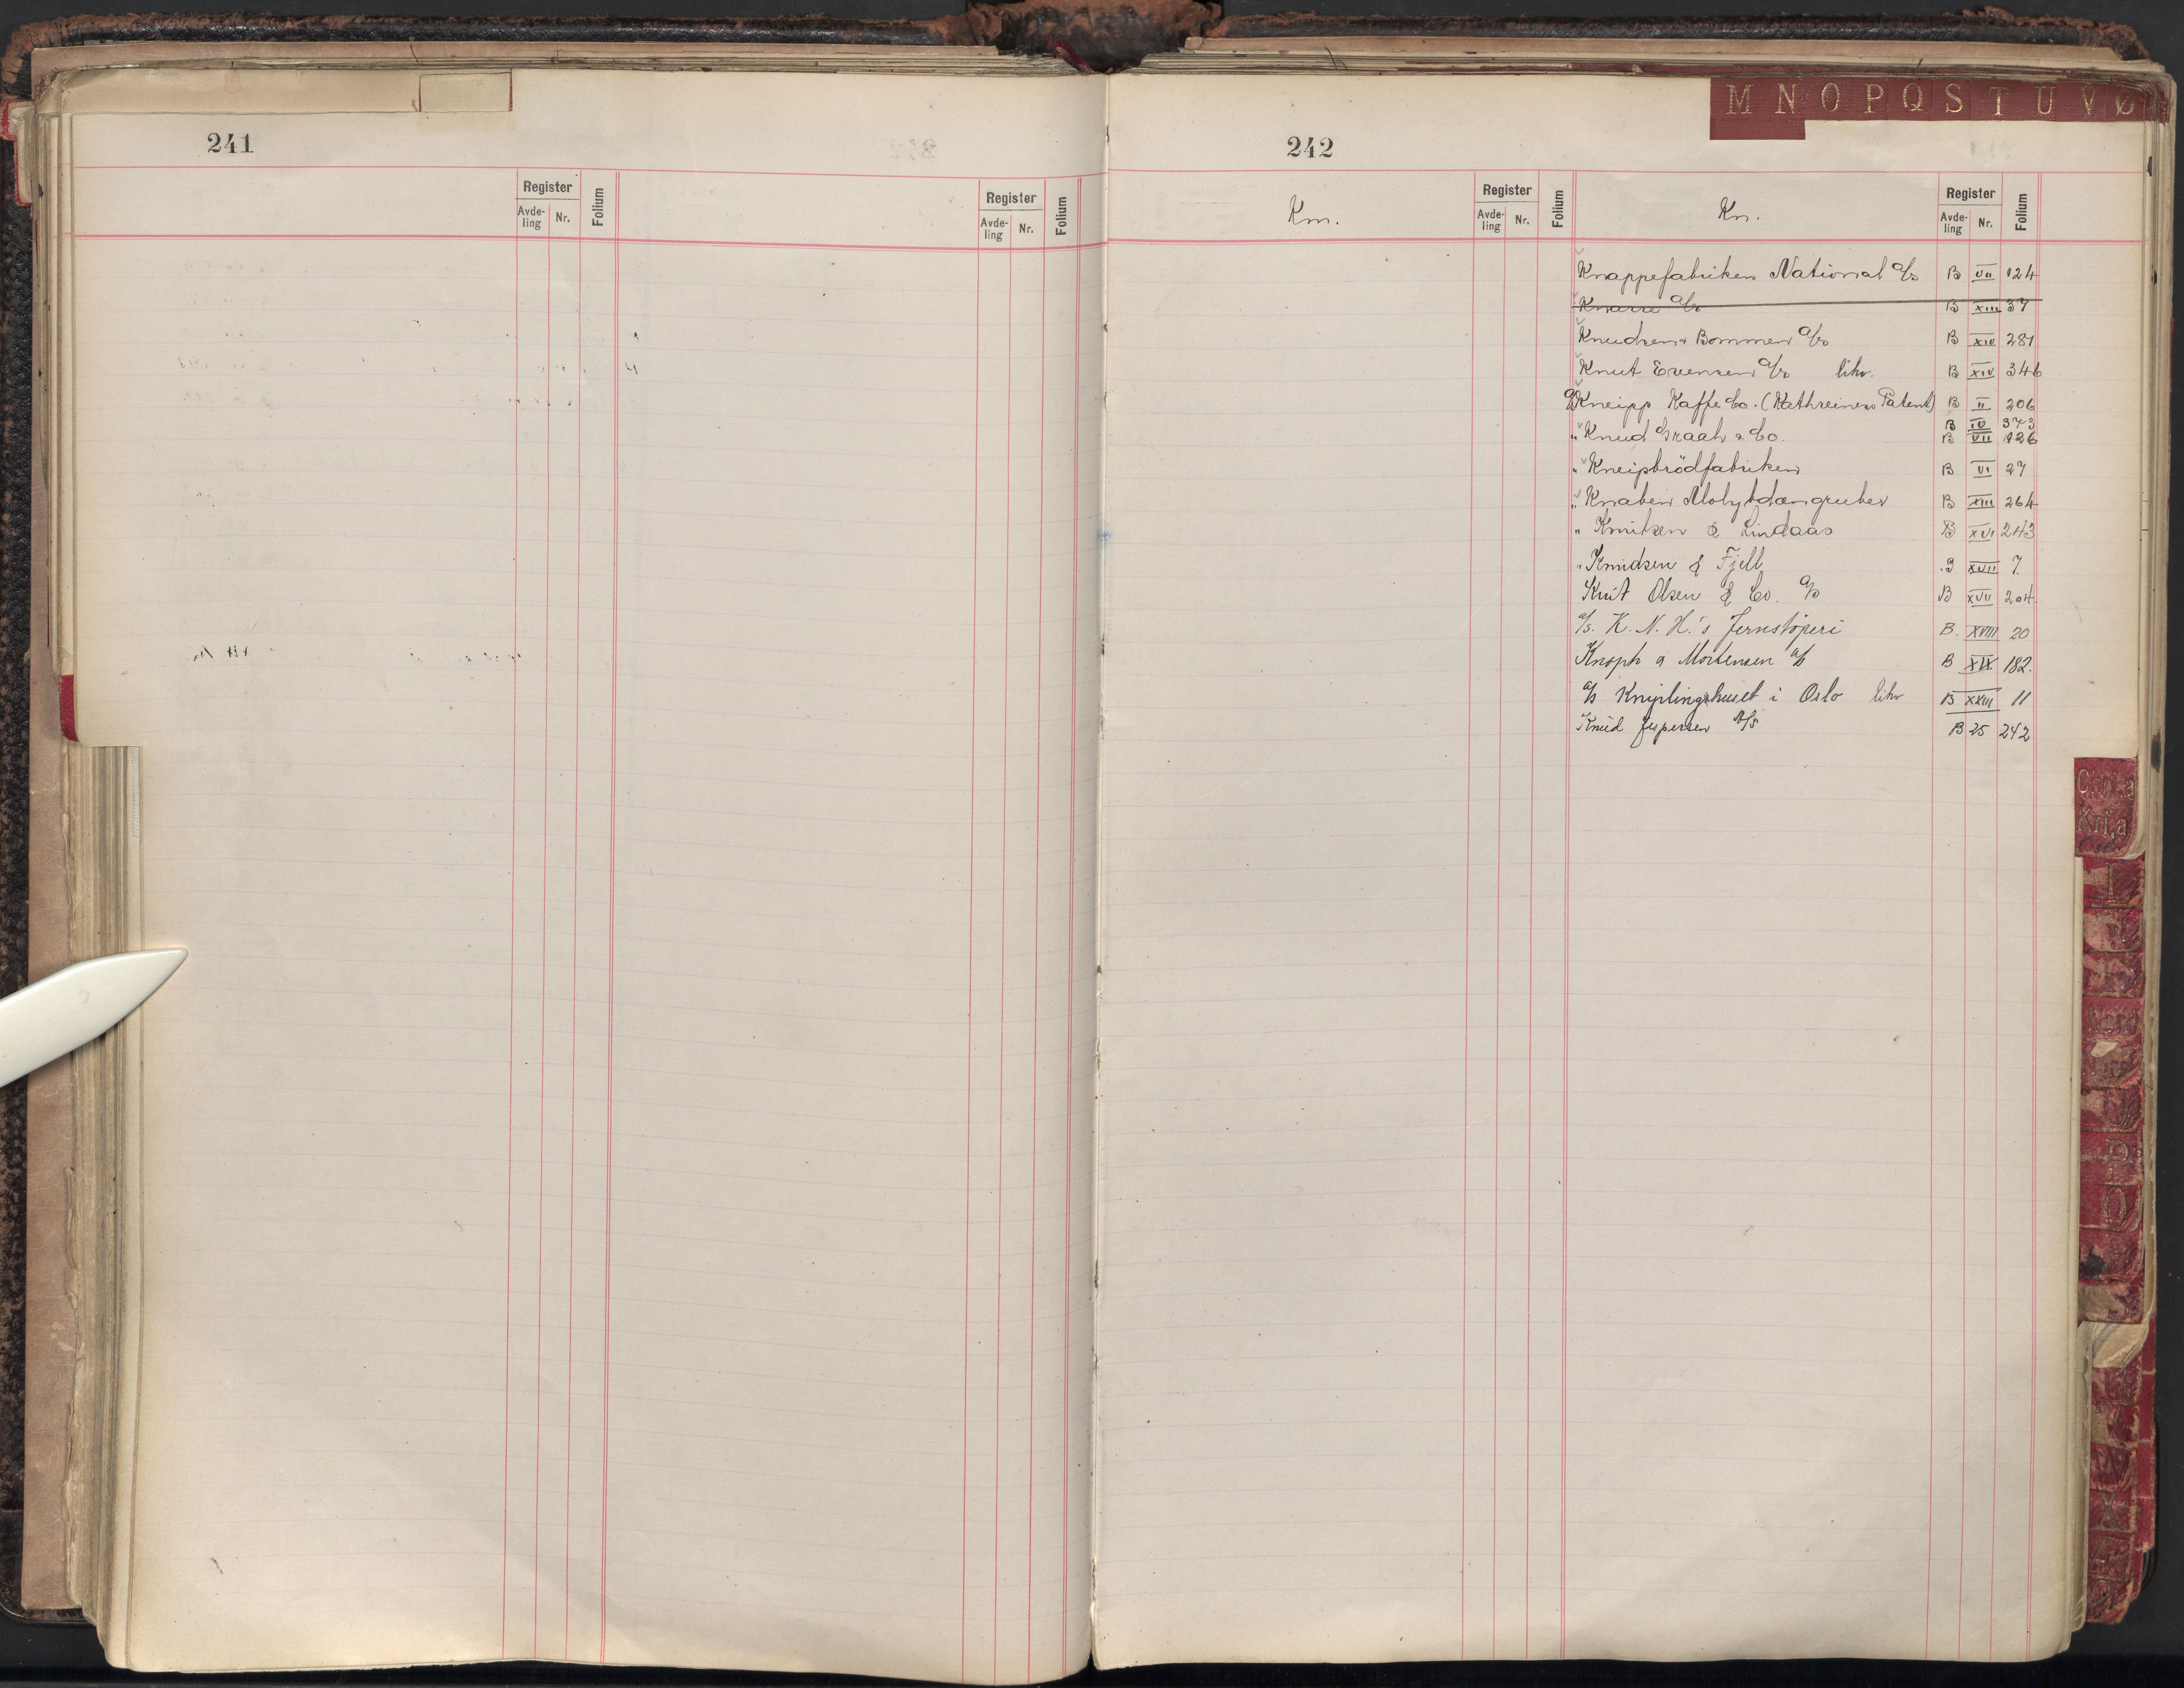 M N O P Q S T U V Ø
241
242
Register
Avde-
ling
Nr.
Folium
Register
Avde-
ling
Nr.
Folium
Km.
Register
Avde-
ling
Nr.
Folium
Kn.
Register
Avde-
ling
Nr.
Folium
Knappefabriken National A/s B VII 124
Knarre A/s B XIII 37
Knudsen & Bommen A/s B XIV 281
Knut Evensen A/s likv. B XIV 346
A/s Kneipp Kaffe Co. (Kathreiners Patent) B II 206
B IV 373
" Knud Graah & Co. B VII 126
" Kneipbrödfabriken B VI 27
" Knaben Molybdængruber B XIII 264
" Knutsen & Lindaas B XVI 243
" Knudsen & Fjell B XVII 7.
Knut Olsen & Co. A/s B XVII 204.
A/s. K. N. H.'s Jernstöperi B. XVIII 20
Knoph & Mortensen A/s B XIX 182.
A/s Kniplingshuset i Oslo likv B XXIII 11
Knud Jespersen A/S B 25 242
Kri.a